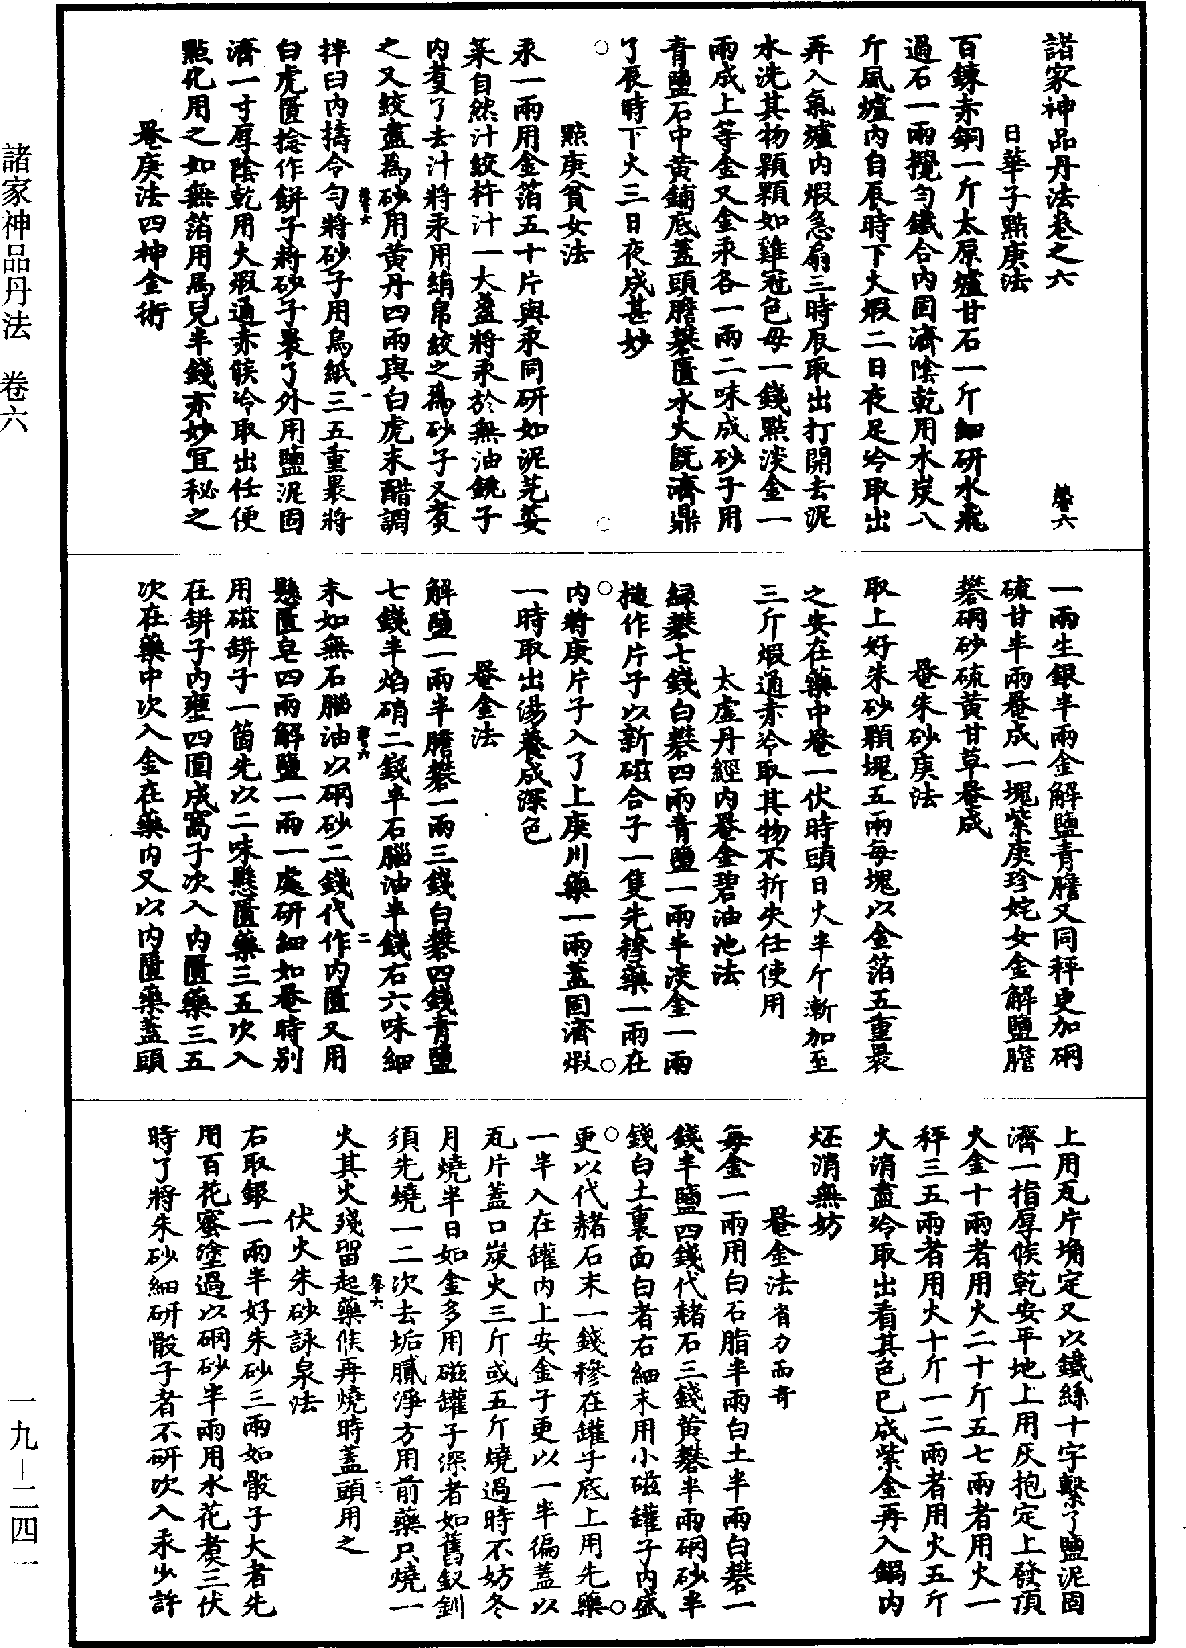 諸家神品丹法卷之六
卷六
日華子點庚法
百鍊赤銅一斤太原爐甘石一斤細研水飛
過石一兩攪勻鐵合內固濟陰乾用木炭八
斤風爐內自辰時下火煆二日夜足冷取出
再入氣爐內煆急扇三時辰取出打開去泥
水洗其物顆顆如雞冠色母一錢點淡金一
兩成上等金又金汞各一兩二味成砂子用
青鹽石中黃鋪底蓋頭膽礬匱水火既濟鼎
了辰時下火三日夜成甚妙
點庚貧女法
汞一兩用金箔五十片與汞同研如泥芫荽
菜自然汁絞杵汁一大盞將汞於無油銚子
內煑了去汁將汞用絹帛絞之爲砂子又煑
之又絞盡爲砂用黃丹四兩與白虎末醋調
拌臼內擣令勻將砂子用烏紙三五重裹將
白虎匱捻作餅子將砂子裹了外用鹽泥固
濟一寸厚陰乾用火煆通赤候冷取出任便
點化用之如無箔用馬兒半錢亦妙宜秘之
卷六 一
罨庚法四神金術
一兩生銀半兩金解鹽青膽又同秤更加硇
硫甘半兩罨成一塊紫庚珍姹女金解鹽膽
礬硇砂硫黃甘草罨成
罨朱砂庚法
取上好朱砂顆塊五兩每塊以金箔五重裹
之安在藥中罨一伏時頭日火半斤漸加至
三斤煆通赤冷取其物不折失任使用
太虛丹經內罨金碧油池法
綠礬七錢白礬四兩青鹽一兩半淡金一兩
搥作片子以新磁合子一隻先摻藥一兩在
內將庚片子入了上庚川藥一兩蓋固濟煆
一時取出湯養成深色
罨金法
解鹽一兩半膽礬一兩三錢白礬四錢青鹽
七錢半焰硝二錢半石腦油半錢右六味細
末如無石腦油以硇砂二錢代作內匱又用
懸匱皂四兩解鹽一兩一處研細如罨時別
用磁餅子一箇先以二味懸匱藥三五次入
在餅子內壅四圍成窩子次入內匱藥三五
次在藥中次入金在藥內又以內匱藥蓋頭
卷六 二
上用瓦片埆定又以鐵絲十字繫了鹽泥固
濟一指厚候乾安平地上用灰抱定上發頂
火金十兩者用火二十斤五七兩者用火一
秤三五兩者用火十斤一二兩者用火五斤
火消盡冷取出看其色已成紫金再入鍋內
烓消無妨
罨金法省力而奇
每金一兩用白石脂半兩白土半兩白礬一
錢半鹽四錢代赭石三錢黃礬半兩硇砂半
錢白土裏面白者右細末用小磁罐子內盛
更以代赭石末一錢摻在罐子底上用先藥
一半入在罐內上安金子更以一半徧蓋以
瓦片蓋口炭火三斤或五斤燒過時不妨冬
月燒半日如金多用磁罐子深者如舊釵釧
須先燒一二次去垢膩淨方用前藥只燒一
火其火殘留起藥候再燒時蓋頭用之
卷六 三
伏火朱砂詠泉法
右取銀一兩半好朱砂三兩如骰子大者先
用百花蜜塗過以硇砂半兩用水花煑三伏
時了將朱砂細研骰子者不研次入汞少許
諸家神品丹法 卷六
一九—二四一